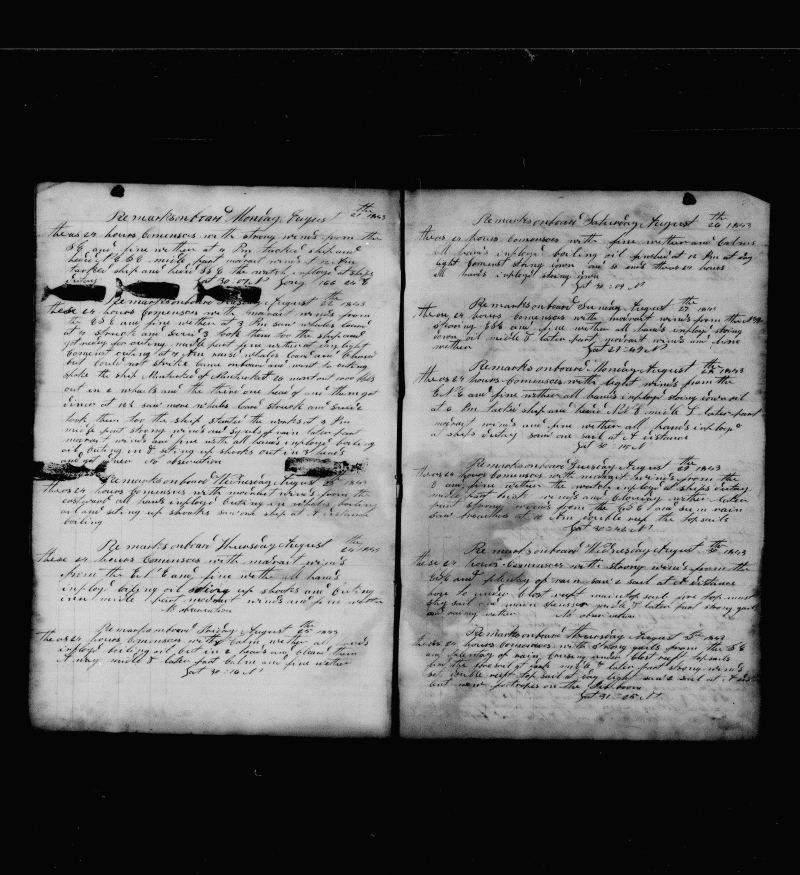 Remarks on board Monday August 21th 1843
theas 24 hours Comences with strong winds from the
S E and fine wether at 4 Pm tacked ship and
heded N E E midle part modrait winds at 12 Am
tacked ship and heded S S E the watch imployd at ships
dutiey Lat 30 07 N Long 166 24 E
Remarks on board Tuesday August 22 1843
these 24 hours Comences with modrait winds from
the E S E and fine wether at 3 Pm saw whales loard
at 4 strouck and saved 2 took them too the ship and
got redy for cuting midle part fine wether at day light
Comenst cuting at 7 Am raisd whales loard and Chased
but could not strike Came onboard and went to cuting
spoke the ship of Nantucket 20 months out
out in 2 whails and the thire one head of one them got
diner at 12 saw more whales loard strouck and saved
took them too the ship started the works at 8 Pm
midle part strong winds and squls of rain later part
modrait winds and fine wether all hands imployd boiling
oil cuting in & seting up shooks cut in 3 heads
and got diner No observation
Remarks on board Wednesday August 23 1843
theas 24 hours Comences with modrait winds from the
eastward all hands imployd cuting in whales boiling
oil and seting up shooks saw one ship at A distance
boiling
Remarks on board Thursday August 24th 1843
these 24 hours Comences with modrait winds
from the E and fine wether all hands
imployd boiling oil seting up shooks and cuting
in midle part modrait winds and fine wether
No observation
Remarks on board Friday August 25th 1843
theas 24 hours Comences with Calm wether all hands
imployd boiling oil cut in 2 heads and cleand them
A way midle & later part calm and fine wether
Lat 30 = 10 N
Remarks on board Saturday August 26th 1843
theas 24 hours Comences with fine wether and Calms
All hands imployd boiling oil finished at 12 Pm at day
light Comenst stoing down so ends theas 24 hours
All hands imployd stoing down
Lat 30 = 09 N
Remarks on board Sunday August 27th 1843
these 24 hours Comences with modrait winds from the
E S E and fine wether all hands imployd stoing
down oil midle & later part modrait winds and fine
wether Lat 29 = 49 N
Remarks on board Monday August 28th 1843
theas 24 hours Comences with light winds from the
E N E and fine wether all hands imployd stoing down oil
at 6 Pm tacked ship and heded midle & later part
modrait winds and fine wether all hands imployd
at ships dutiey saw one sail at A distance
Lat 30 = 15 N
Remarks on board Tuesday August 29th 1843
theas 24 hours Comences with modrait winds from the
E and fine wether the watch imployd at ships dutiey
midle part brisk winds and Clowdy wether later
part strong winds from the E S E and sum rain
saw at 4 Am double reeft the top sails
Lat 30 = 42 N
Remarks on board Wednesday August 30th 1843
these 24 hours Comences with strong winds from the
E S E and plenty of rain saw 2 sail at A distance
hove to under Clost reeft maintop sail fore top mast
stay sail and main spencer midle & later part strong gails
and rainy wether No observation
Remarks on board Thursday August 31th 1843
these 24 hours Comences with strong gails from the S E
and plenty of rain under Clost reeft top sails
midle & later part strong winds
set double reeft top sail at day light saw 2 sail at A
Lat 31 = 25 N